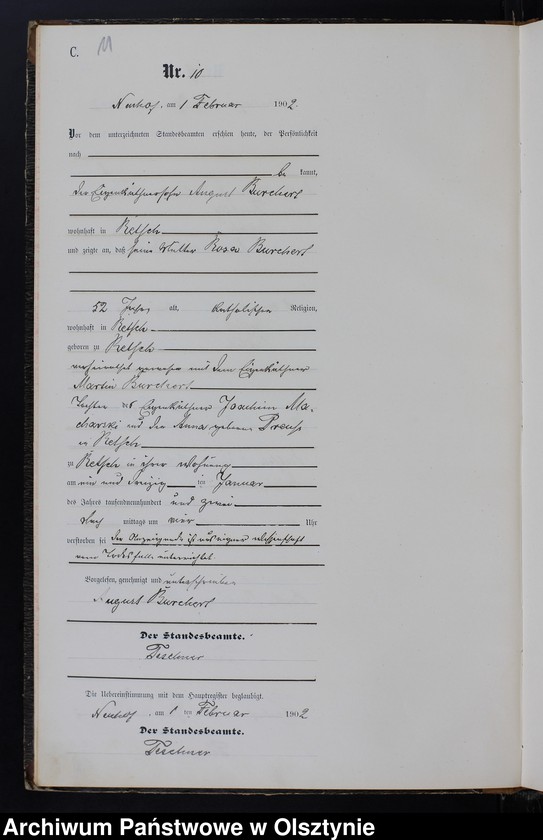 C. 11
Nr. 10
Neuhof, am 1 Februar 1902.
Vor dem unterzeichneten Standesbeamten erschien heute, der Persönlichkeit
nach
be kannt,
der Eigenkäthnersohn August Burchert
wohnhaft in Retsch
und zeigte an, daß seine Mutter Rosa Burchert
52 Jahre alt, katholischer Religion,
wohnhaft in Retsch
geboren zu Retsch
verheirathet gewesen mit dem Eigenkäthner
Martin Burchert
Tochter des Eigenkäthner Joachim Ma-
charski und der Anna geborene Preuß
in Retsch
zu Retsch in ihrer Wohnung
am ein und dreizig ten Januar
des Jahres tausendneunhundert und zwei
Nach mittags um vier Uhr
verstorben sei der Anzeigende ist aus eigner Wissenschaft
vom Todesfall unterrichtet
Vorgelesen, genehmigt und unterschrieben
August Burchert
Der Standesbeamte.
Teschner
Die Uebereinstimmung mit dem Hauptregister beglaubigt.
Neuhof, am 1 ten Februar 1902
Der Standesbeamte.
Teschner
Archiwum Państwowe w Olsztynie